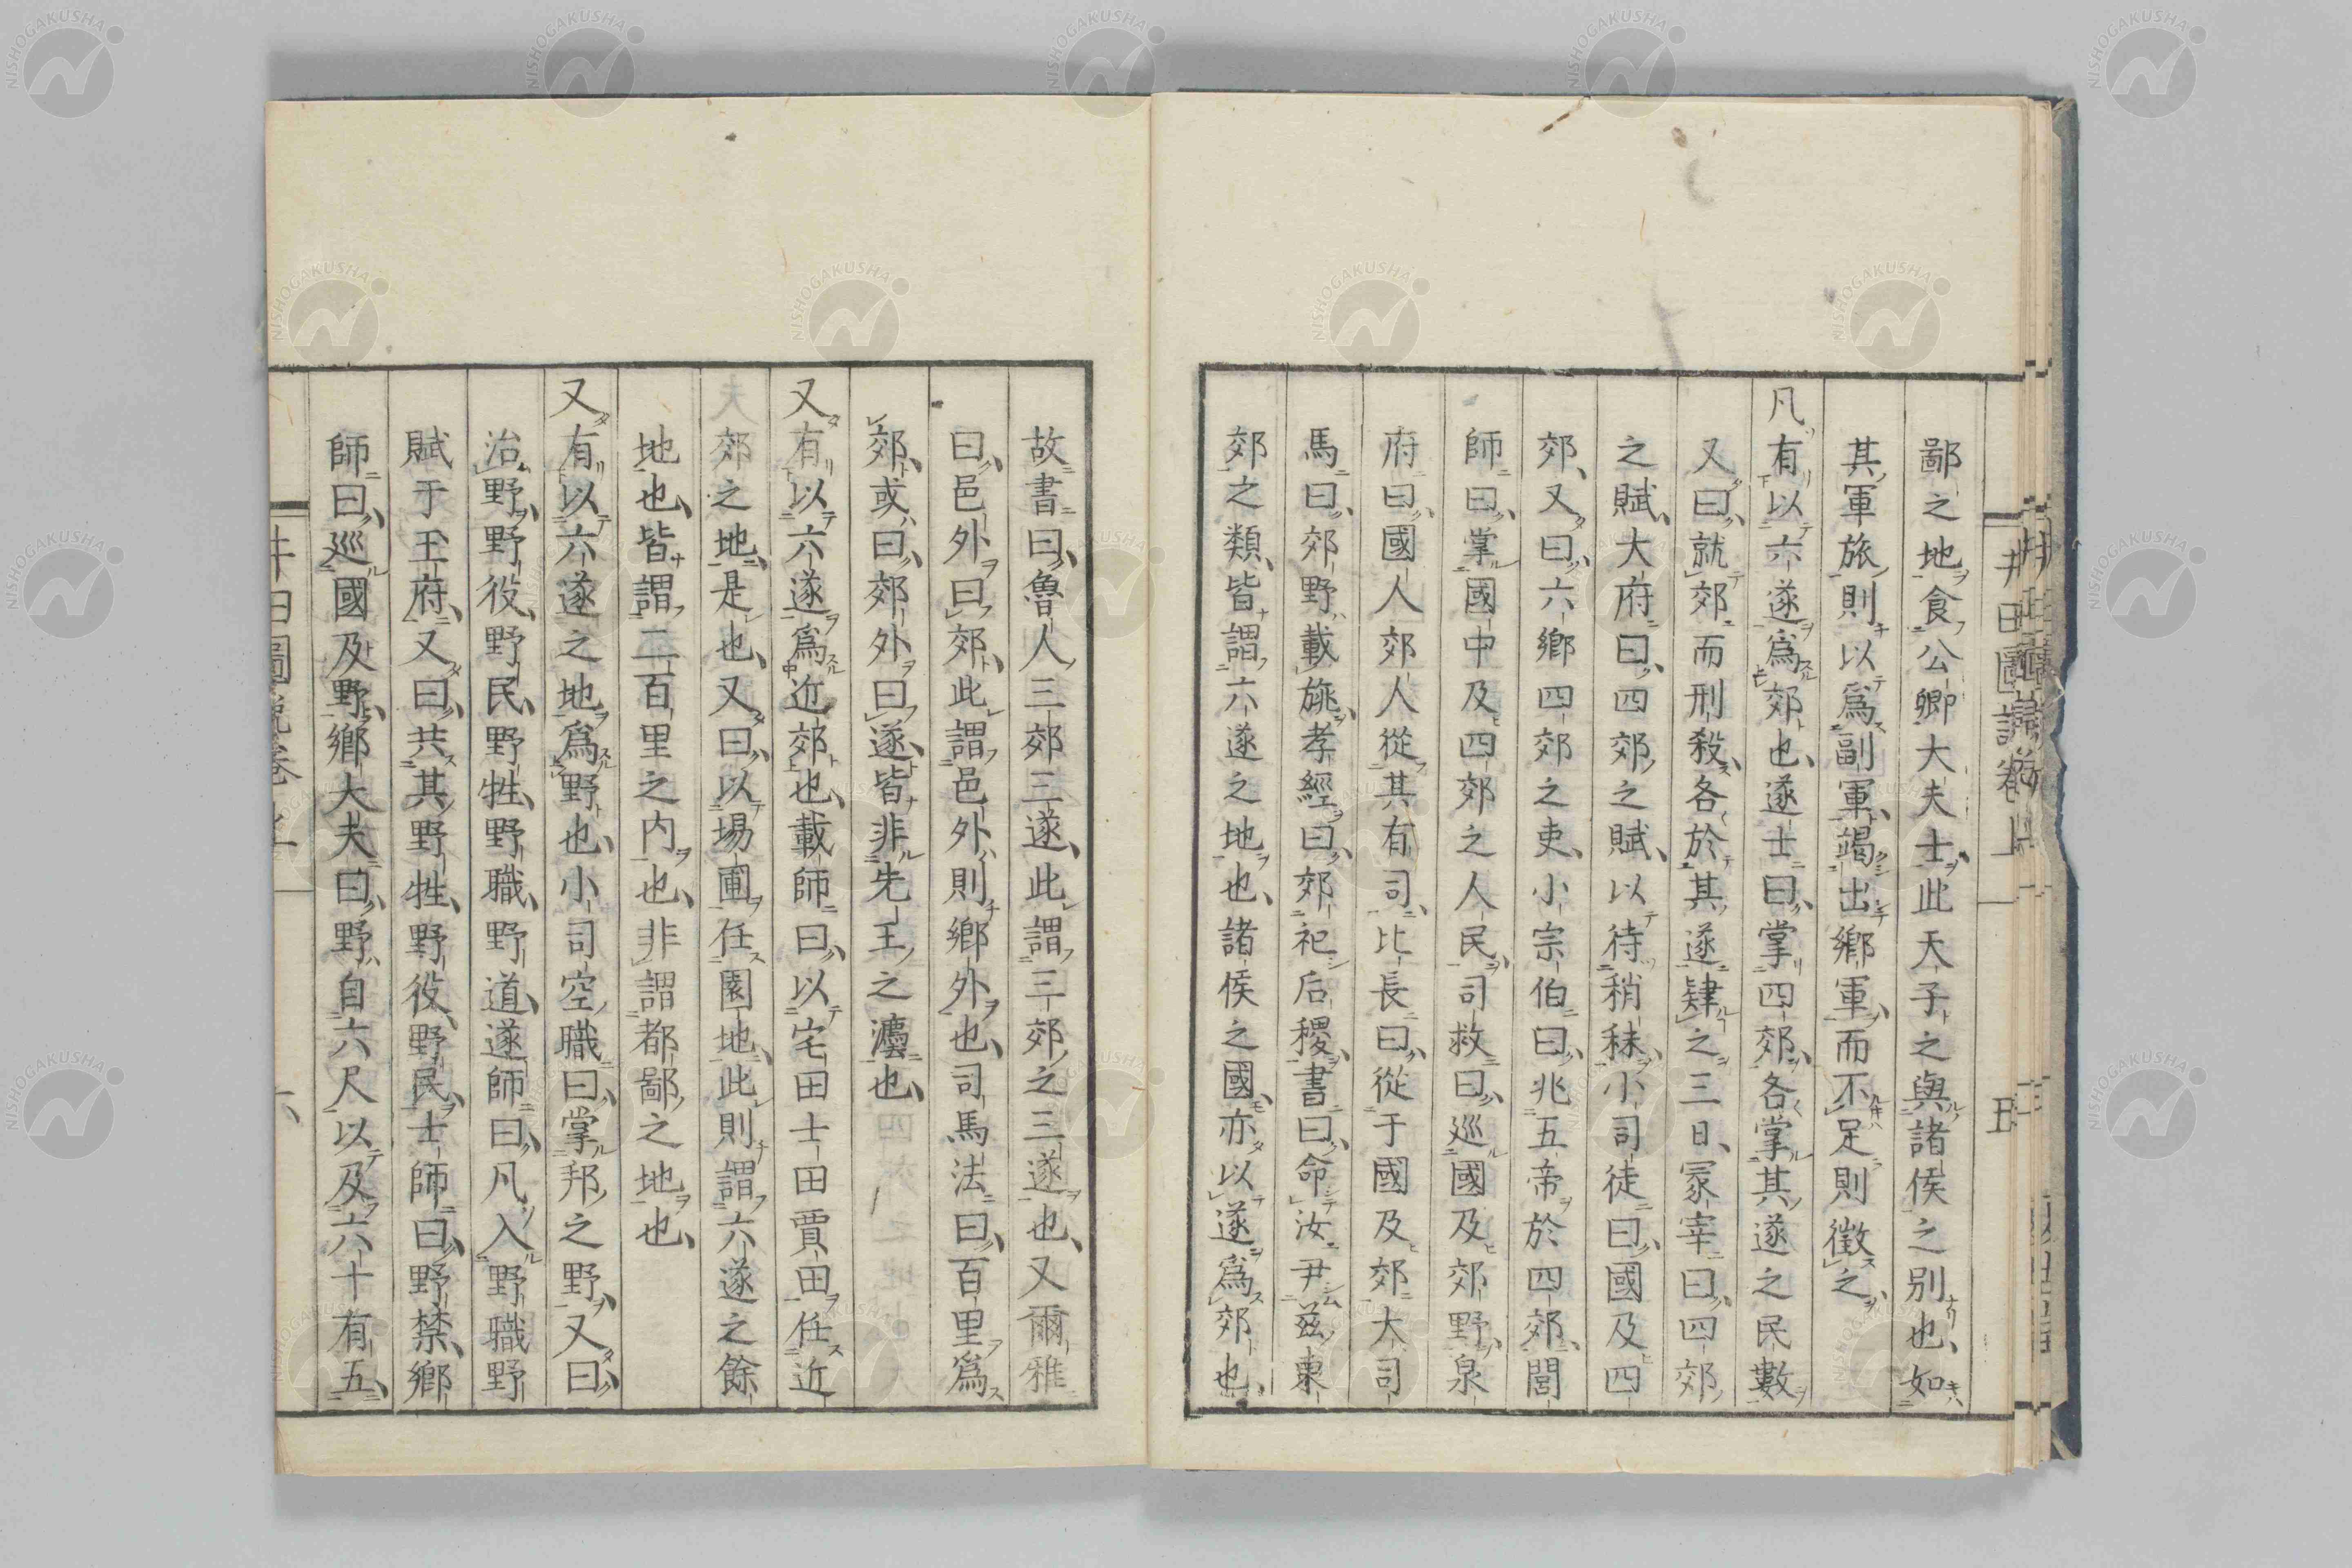 鄙之地食公卿大夫士、此天子之與諸侯之別也、如
其軍旅則以爲副軍、竭出鄉軍、而不足則徵之、
凡有以六遂爲郊也、遂士曰、掌四郊、各掌其遂之民數
又曰、就郊而刑殺、各於其遂肆之三日、冢宰曰、四郊
之賦、大府曰、四郊之賦、以待稍秣、小司徒曰、國及四
郊、又曰、六鄉四郊之吏、小宗伯曰、兆五帝於四郊、閭
師曰、掌國中及四郊之人民、司救曰、巡國及郊野、泉
府曰、國人郊人從其有司、比長曰、從于國及郊、大司
馬曰、郊野載旐、孝經曰、郊祀后稷、書曰、命汝尹茲東
郊之類、皆謂六遂之地也、諸侯之國、亦以遂爲郊也、
故書曰、魯人三郊三遂、此謂三郊之三遂也、又爾雅
曰、邑外曰郊、此謂邑外則鄉外也、司馬法曰、百里爲
郊、或曰、郊外曰遂、皆非先王之灋也、
又有以六遂爲近郊也、載師曰、以宅田士田賈田任近
郊之地、是也、又曰、以場圃任園地、此則謂六遂之餘
地也、皆謂二百里之内也、非謂都鄙之地也、
又有以六遂之地爲野也、小司空職曰、掌邦之野、又曰、
治野、野役、野民、野牲、野職、野道、遂師曰、凡入野職野
賦于王府、又曰、共其野牲、野役、野民、士師曰、野禁、鄉
師曰、巡國及野、鄉大夫曰、野自六尺以及六十有五、
NISHOGAKUSHA